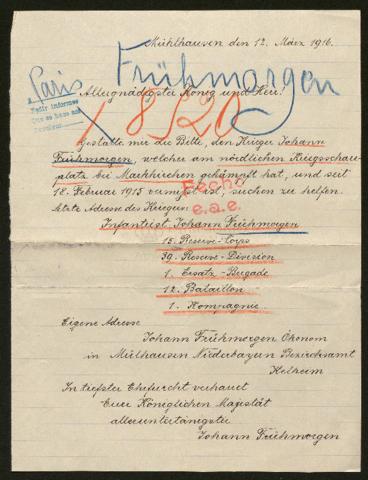 Mühlhausen den 12. März 1916.
Frühmorgen
Paris
Allergnädigster König und Herr!
Pedir informes
Que se hace asi
18520
Gestatte mir die Bitte, den Krieger Johann
Frühmorgen, welcher am nördlichen Kriegsschau-
platz bei Markkirchen gekämpft hat, und seit
18. Februar 1915 vermißt ist, suchen zu helfen.
Fecho
letzte Adresse des Kriegers
e.a.e.
Infanterist Johann Frühmorgen
15. Reserve-Corps
39. Reserve-Division
1. Ersatz-Brigade
12. Bataillon
1. Kompagnie
Eigene Adresse
Johann Frühmorgen Ökonom
in Mülhausen Niederbayern Bezirksamt
Kelheim
In tiefster Ehrfurcht verharret
Eurer Königlichen Majestät
alleruntertänigster
Johann Frühmorgen